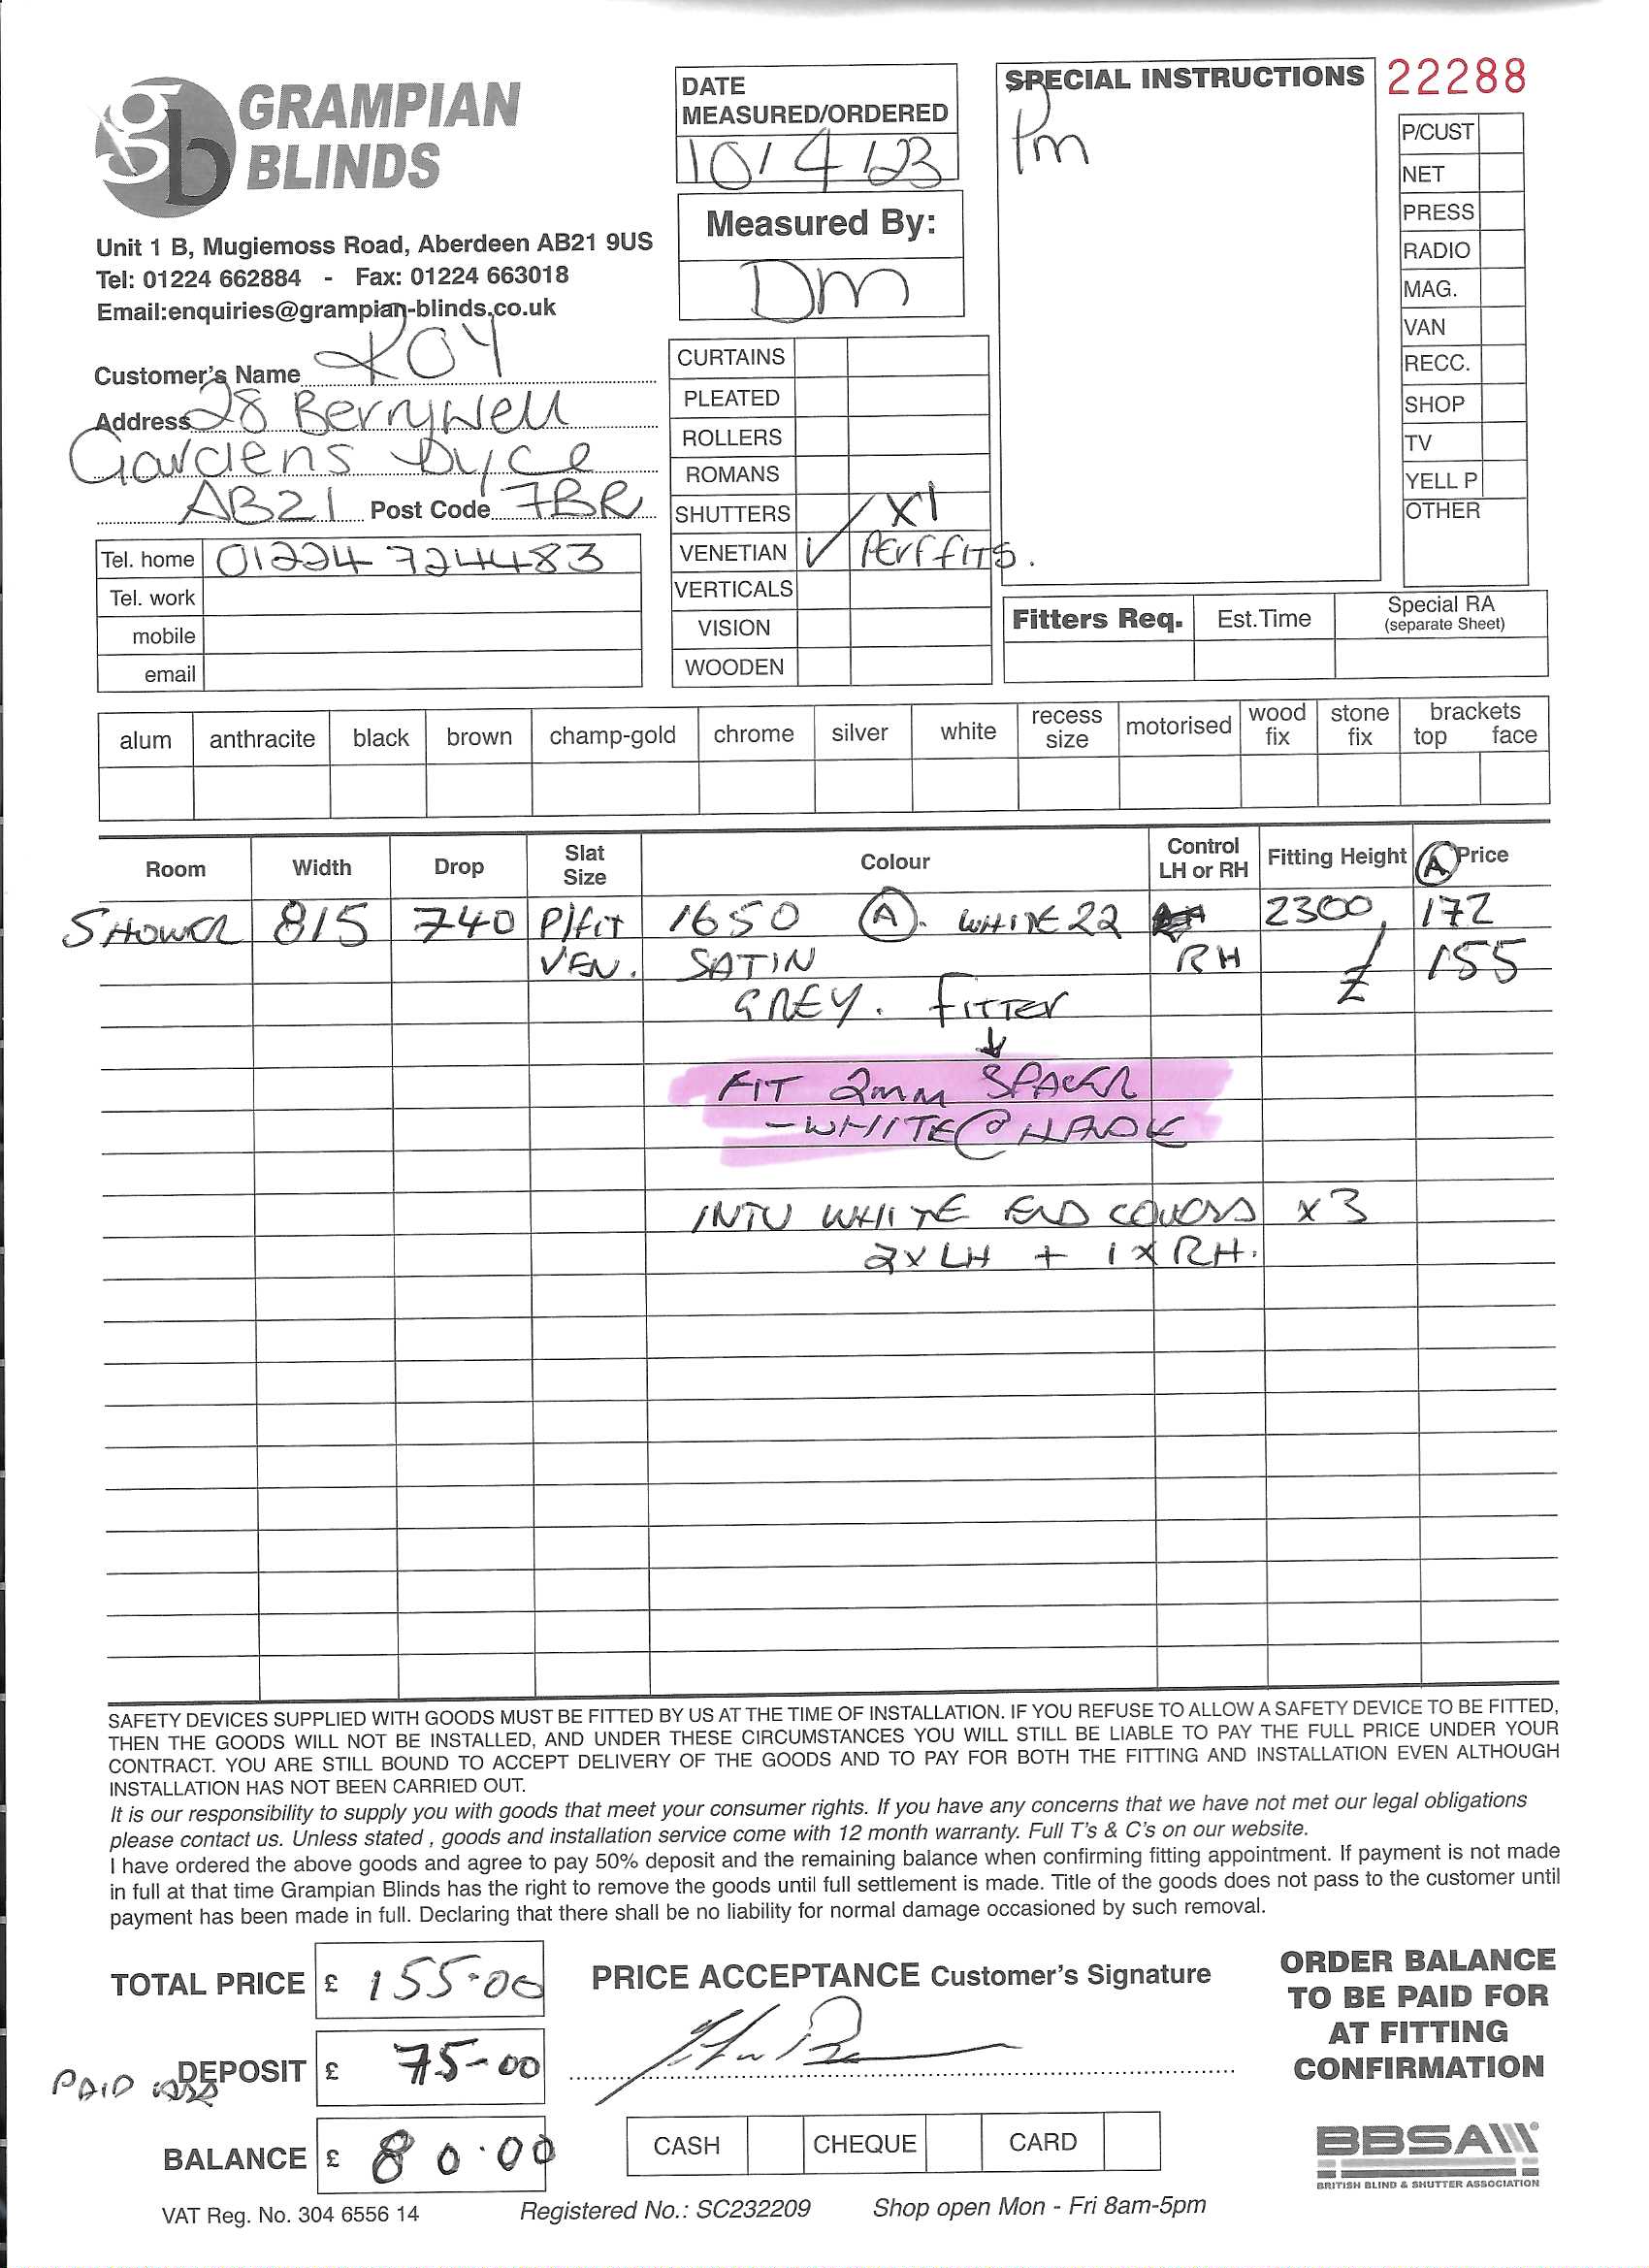 GRAMPIAN
BLINDS
Unit 1 B, Mugiemoss Road, Aberdeen AB21 9US
Tel: 01224 662884 - Fax: 01224 663018
Email:enquiries@grampian-blinds.co.uk
Customer's Name ROY
Address 28 Berrywell
Gardens Dyce
AB21 Post Code 7BR
Tel. home 01224 724483
Tel. work
mobile
email
DATE
MEASURED/ORDERED
10/4/23
Measured By:
DM
CURTAINS
PLEATED
ROLLERS
ROMANS
SHUTTERS X1
VENETIAN ✓ PERFFITS.
VERTICALS
VISION
WOODEN
SPECIAL INSTRUCTIONS
Pm
22288
P/CUST
NET
PRESS
RADIO
MAG.
VAN
RECC.
SHOP
TV
YELL P
OTHER
Fitters Req. Est.Time Special RA
(separate Sheet)
alum anthracite black brown champ-gold chrome silver white recess size motorised wood fix stone fix brackets top face
Room Width Drop Slat Size Colour Control LH or RH Fitting Height A Price
SHOWER 815 740 P/fit 1650 A. WHITE 22 2300 172
VEN. SATIN RH £ 155
GREY. FITTER
↓
FIT 2mm SPACER
- WHITE @ HANDLE
INTU WHITE END COVERS x3
2x LH + 1x RH.
SAFETY DEVICES SUPPLIED WITH GOODS MUST BE FITTED BY US AT THE TIME OF INSTALLATION. IF YOU REFUSE TO ALLOW A SAFETY DEVICE TO BE FITTED,
THEN THE GOODS WILL NOT BE INSTALLED, AND UNDER THESE CIRCUMSTANCES YOU WILL STILL BE LIABLE TO PAY THE FULL PRICE UNDER YOUR
CONTRACT. YOU ARE STILL BOUND TO ACCEPT DELIVERY OF THE GOODS AND TO PAY FOR BOTH THE FITTING AND INSTALLATION EVEN ALTHOUGH
INSTALLATION HAS NOT BEEN CARRIED OUT.
It is our responsibility to supply you with goods that meet your consumer rights. If you have any concerns that we have not met our legal obligations
please contact us. Unless stated , goods and installation service come with 12 month warranty. Full T's & C's on our website.
I have ordered the above goods and agree to pay 50% deposit and the remaining balance when confirming fitting appointment. If payment is not made
in full at that time Grampian Blinds has the right to remove the goods until full settlement is made. Title of the goods does not pass to the customer until
payment has been made in full. Declaring that there shall be no liability for normal damage occasioned by such removal.
TOTAL PRICE £ 155-00
PRICE ACCEPTANCE Customer's Signature
PAID DEPOSIT £ 75-00
BALANCE £ 80.00
CASH CHEQUE CARD
ORDER BALANCE
TO BE PAID FOR
AT FITTING
CONFIRMATION
BBSA
BRITISH BLIND & SHUTTER ASSOCIATION
VAT Reg. No. 304 6556 14 Registered No.: SC232209 Shop open Mon - Fri 8am-5pm